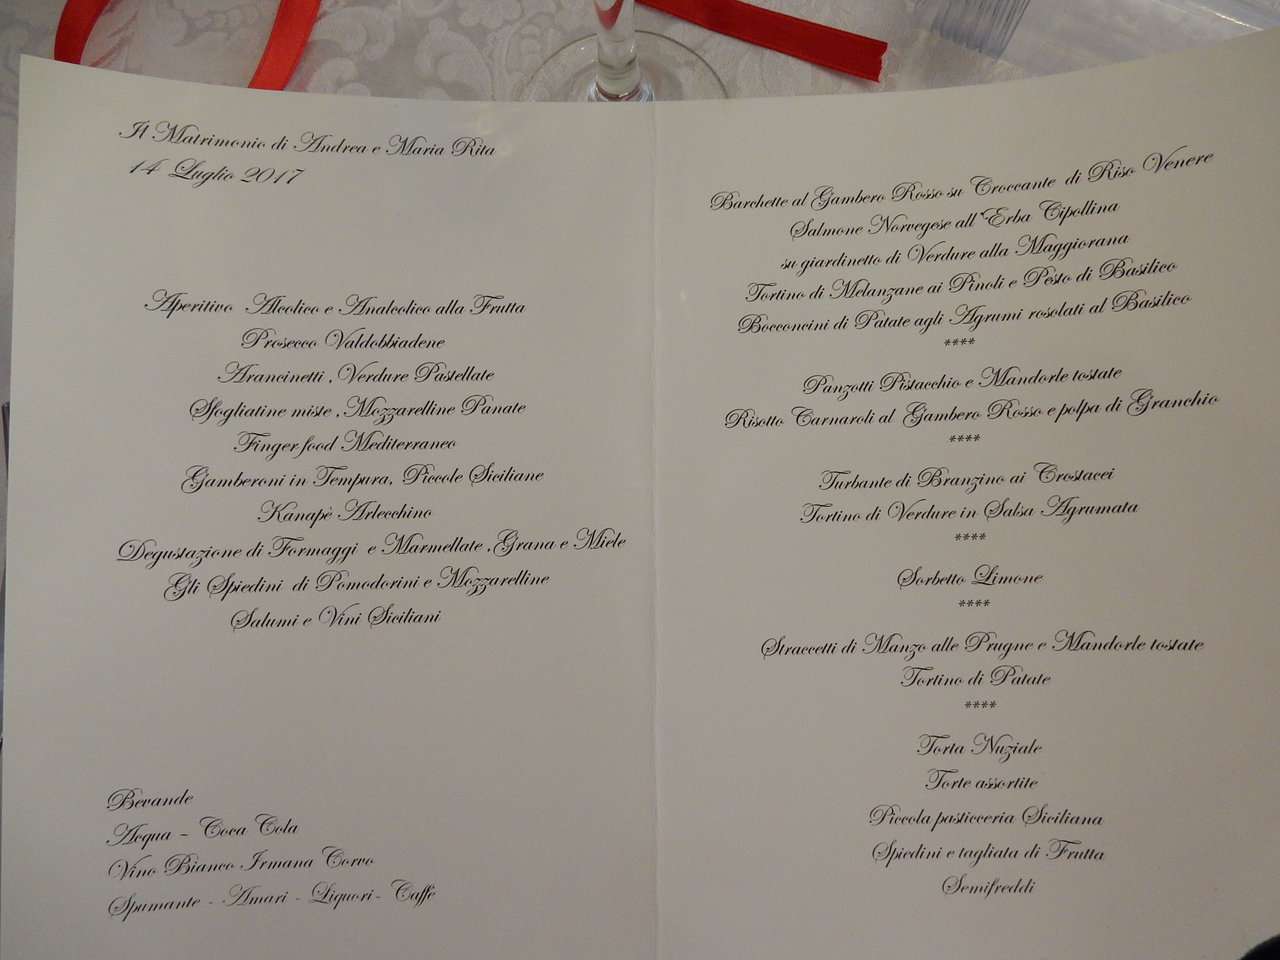 Il Matrimonio di Andrea e Maria Rita
14 Luglio 2017
Aperitivo Alcolico e Analcolico alla Frutta
Prosecco Valdobbiadene
Arancinetti , Verdure Pastellate
Sfogliatine miste , Mozzarelline Panate
Finger food Mediterraneo
Gamberoni in Tempura, Piccole Siciliane
Kanapè Arlecchino
Degustazione di Formaggi e Marmellate ,Grana e Miele
Gli Spiedini di Pomodorini e Mozzarelline
Salumi e Vini Siciliani
Bevande
Acqua – Coca Cola
Vino Bianco Irmana Corvo
Spumante - Amari - Liquori- Caffè
Barchette al Gambero Rosso su Croccante di Riso Venere
Salmone Norvegese all'Erba Cipollina
su giardinetto di Verdure alla Maggiorana
Tortino di Melanzane ai Pinoli e Pesto di Basilico
Bocconcini di Patate agli Agrumi rosolati al Basilico
****
Panzotti Pistacchio e Mandorle tostate
Risotto Carnaroli al Gambero Rosso e polpa di Granchio
****
Turbante di Branzino ai Crostacei
Tortino di Verdure in Salsa Agrumata
****
Sorbetto Limone
****
Straccetti di Manzo alle Prugne e Mandorle tostate
Tortino di Patate
****
Torta Nuziale
Torte assortite
Piccola pasticceria Siciliana
Spiedini e tagliata di Frutta
Semifreddi